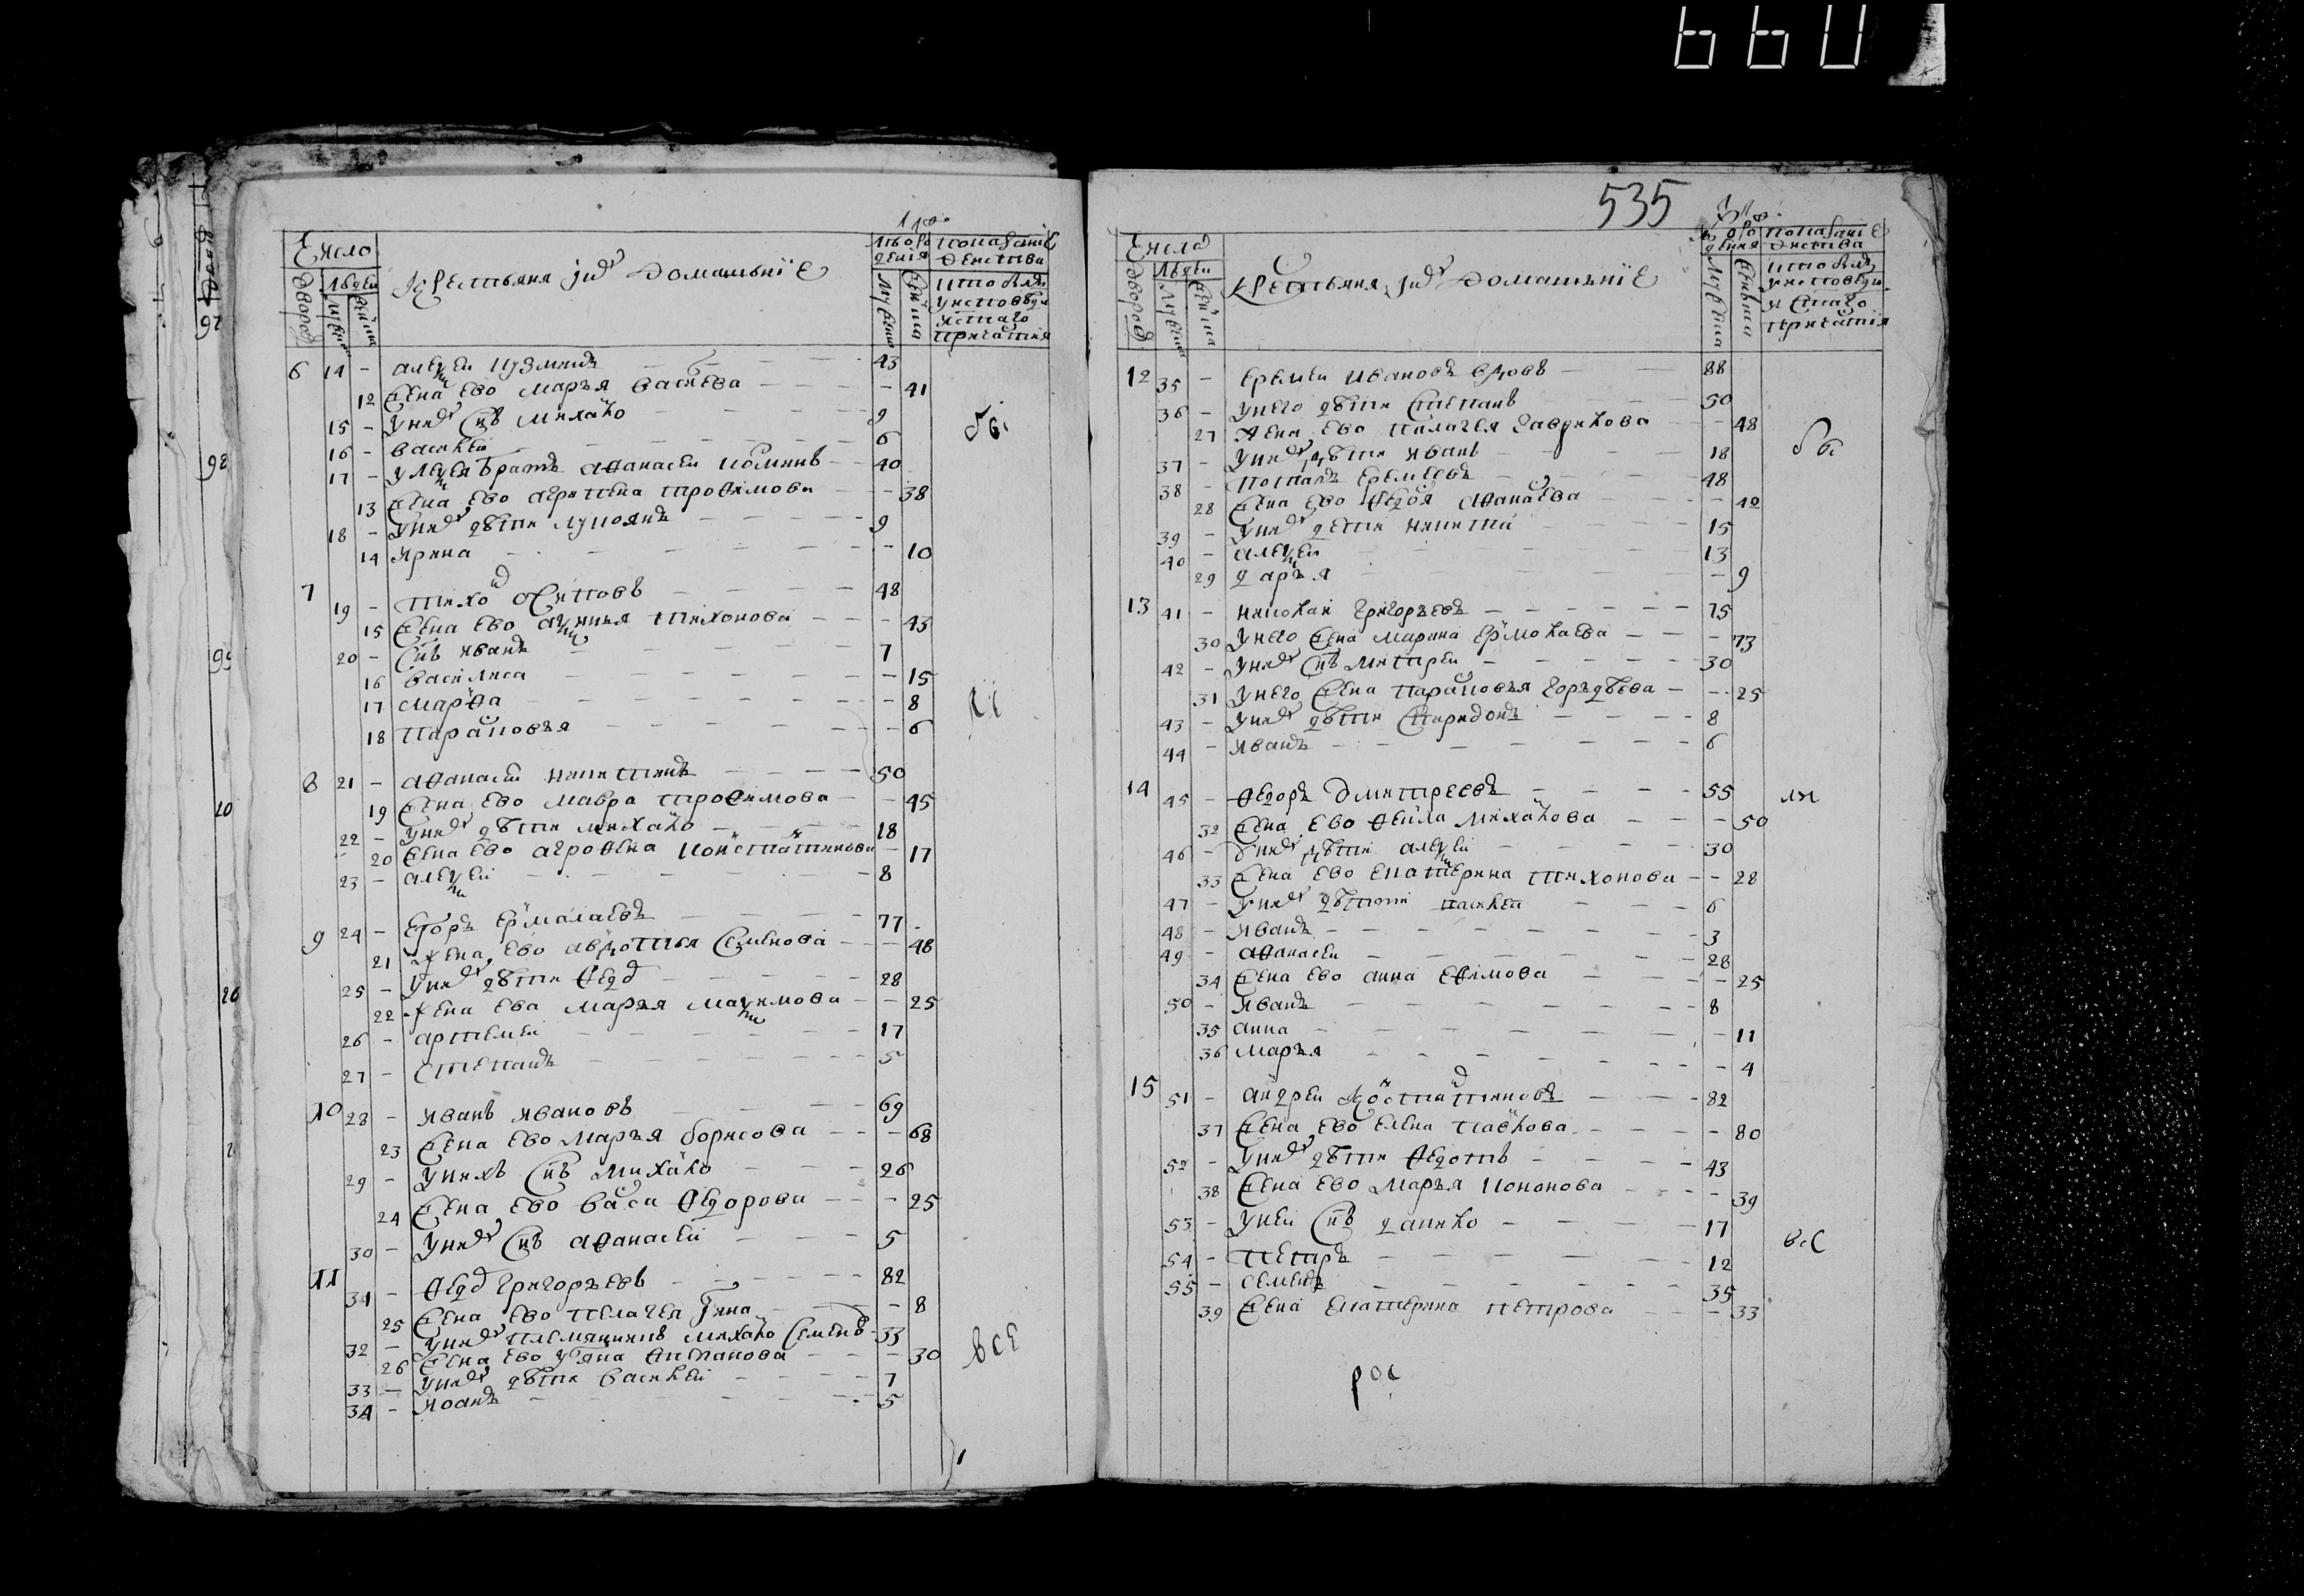 535
Число
дворовъ
людей
мужеска
женска
крестьяня и ихъ домашьніе
показаніе
действа
кто былъ
у исповеди
и святаго
причастия
6 14 - алеѯей кузминъ - 43
12 жена ево марья василева - 41
15 - у нихъ снъ михайло 9
16 - василей - 6
17 - у алеѯея братъ аѳанасеи кузминъ - 40
13 жена ево агрипена троѳимова - 38
18 - у нихъ дѣти лукоянъ - 9
14 ирина - 10
7 19 - тихонъ осиповъ - 48
15 жена ево аѯинья тихонова - 43
20 - снъ иванъ - 7
16 василиса - 15
17 марѳа - 8
18 парасковья - 6
8 21 - аѳанасей никитинъ - 50
19 жена ево мавра троѳимова - 45
22 - у нихъ дѣти михайло - 18
20 жена ево агроѳена констатинова - 17
23 - алеѯей - 8
9 24 - егоръ ермолаевъ - 77
21 жена ево авдотья семенова - 48
25 - у нихъ дѣти ѳедоръ - 28
22 жена ева марья маѯимова - 25
26 - артемей - 17
27 - степанъ - 5
10 28 - иванъ ивановъ - 69
23 жена ево марья борисова - 68
29 - у нихъ снъ михайло - 26
24 жена ево васса ѳедорова - 25
30 - у нихъ снъ аѳанасей - 5
11 31 - ѳедоръ григорьевъ - 82
25 жена ево пелагея - 8
32 - у нихъ племянникъ михайло семенъ - 33
26 жена ево ульяна степанова - 30
33 - у нихъ дѣти василей - 7
34 - иванъ - 5
все
Число
дворовъ
людей
мужеска
женска
крестьяня и ихъ домашьніе
показаніе
действа
кто былъ
у исповеди
и святаго
причастія
12 35 - еремей ивановъ вдовъ - 88
36 - у него дѣти степанъ 50
27 жена ево пелагея гаврилова - 48
37 - у нихъ дѣти иванъ - 18
38 - потапъ еремеевъ - 48
28 жена ево ѳедосья аѳанасева - 42
39 - у нихъ дети никита - 15
40 - алеѯей - 13
29 дарья - 9
13 41 - николай григорьевъ - 75
30 у него жена марина ермолаева - 73
42 - у нихъ снъ митрей - 30
31 у него жена парасковья гордѣева - 25
43 - у нихъ дѣти спиридонъ - 8
44 - иванъ - 6
14 45 - ѳедоръ дмитреевъ - 55
32 жена ево ѳекла михайлова - 50
46 - у нихъ дѣти алеѯей - 30
33 жена ево екатерина тихонова - 28
47 - у нихъ дѣти василей - 6
48 - иванъ - 3
49 - аѳанасеи - 28
34 жена ево анна еѳимова - 25
50 - иванъ - 8
35 анна - 11
36 марья - 4
15 51 - андреи констатиновъ - 82
37 жена ево елена павлова - 80
52 - у нихъ дѣти ѳедотъ - 43
38 жена ево марья кононова - 39
53 - у ней снъ данило - 17
54 - петръ - 12
55 - семенъ - 35
39 жена екатерина петрова - 33